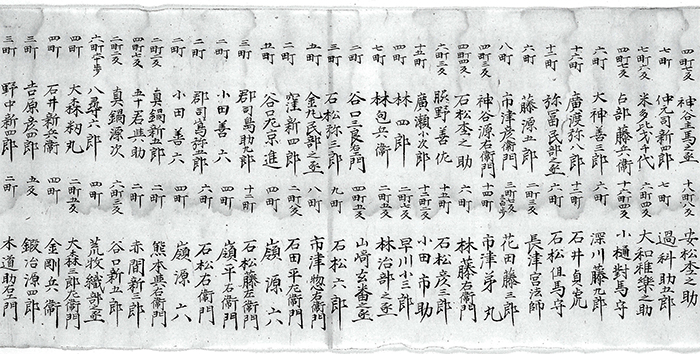 四町七反 神谷主馬丞
七町 仲元寺新四郎
七町六反 米多比茂千代
四町七反 占部藤兵衛
六町 大神善三郎
十六町 廣渡弥八郎
十二町 弥冨民部丞
六町 藤源五郎
八町 市津彦衛門
四町三反 神谷源右衛門
四町 石松杢之助
六町三反 豚野善佐
十五町 廣瀬小次郎
四町 林四郎
七町 林包兵衛
二町 谷口三良左エ門
三町 石松弥三郎
五町 金丸民部之丞
二町 窪新四郎
五町 谷口左京進
三町 郡司嶋助九郎
四町 小田善六
二町 郡司嶋弥五郎
二町 小田善六
四町五反 五十君与助
二町六反 真鍋新五郎
二町二反 真鍋源次
八尋十郎
四町 大森初丸
四町 石井新兵衛
三町 吉原彦四郎
三町 野中新四郎
二町 安松杢之助
四町 過科助五郎
六町四反 大和雅樂之助
十六町四反 小樋對馬守
十町 深川藤九郎
六町 石井貞虎
六町 石松但馬守
二町 長津宮法師
花田藤三郎
十四町 市津弟丸
六町 林藤右衛門
十五町 石松彦三郎
十三町二反 小田市助
二町 早川小三郎
二町七反 林治部之丞
四町五反 山崎玄番之丞
九町 石松六郎
八町 市津惣右衛門
二町 石田平左衛門
四町 嶺源六
二町六反 石松藤左衛門
十二町 嶺平右衛門
六町 石松右衛門
二町 嶺源六
四町 熊本與左衛門
二町 赤間新三郎
六町三反 谷口新五郎
四町 荒牧織部之丞
二町五反 大森三郎左衛門
四町 金剛兵衛
五反 鍛冶源四郎
二町 木道助左エ門